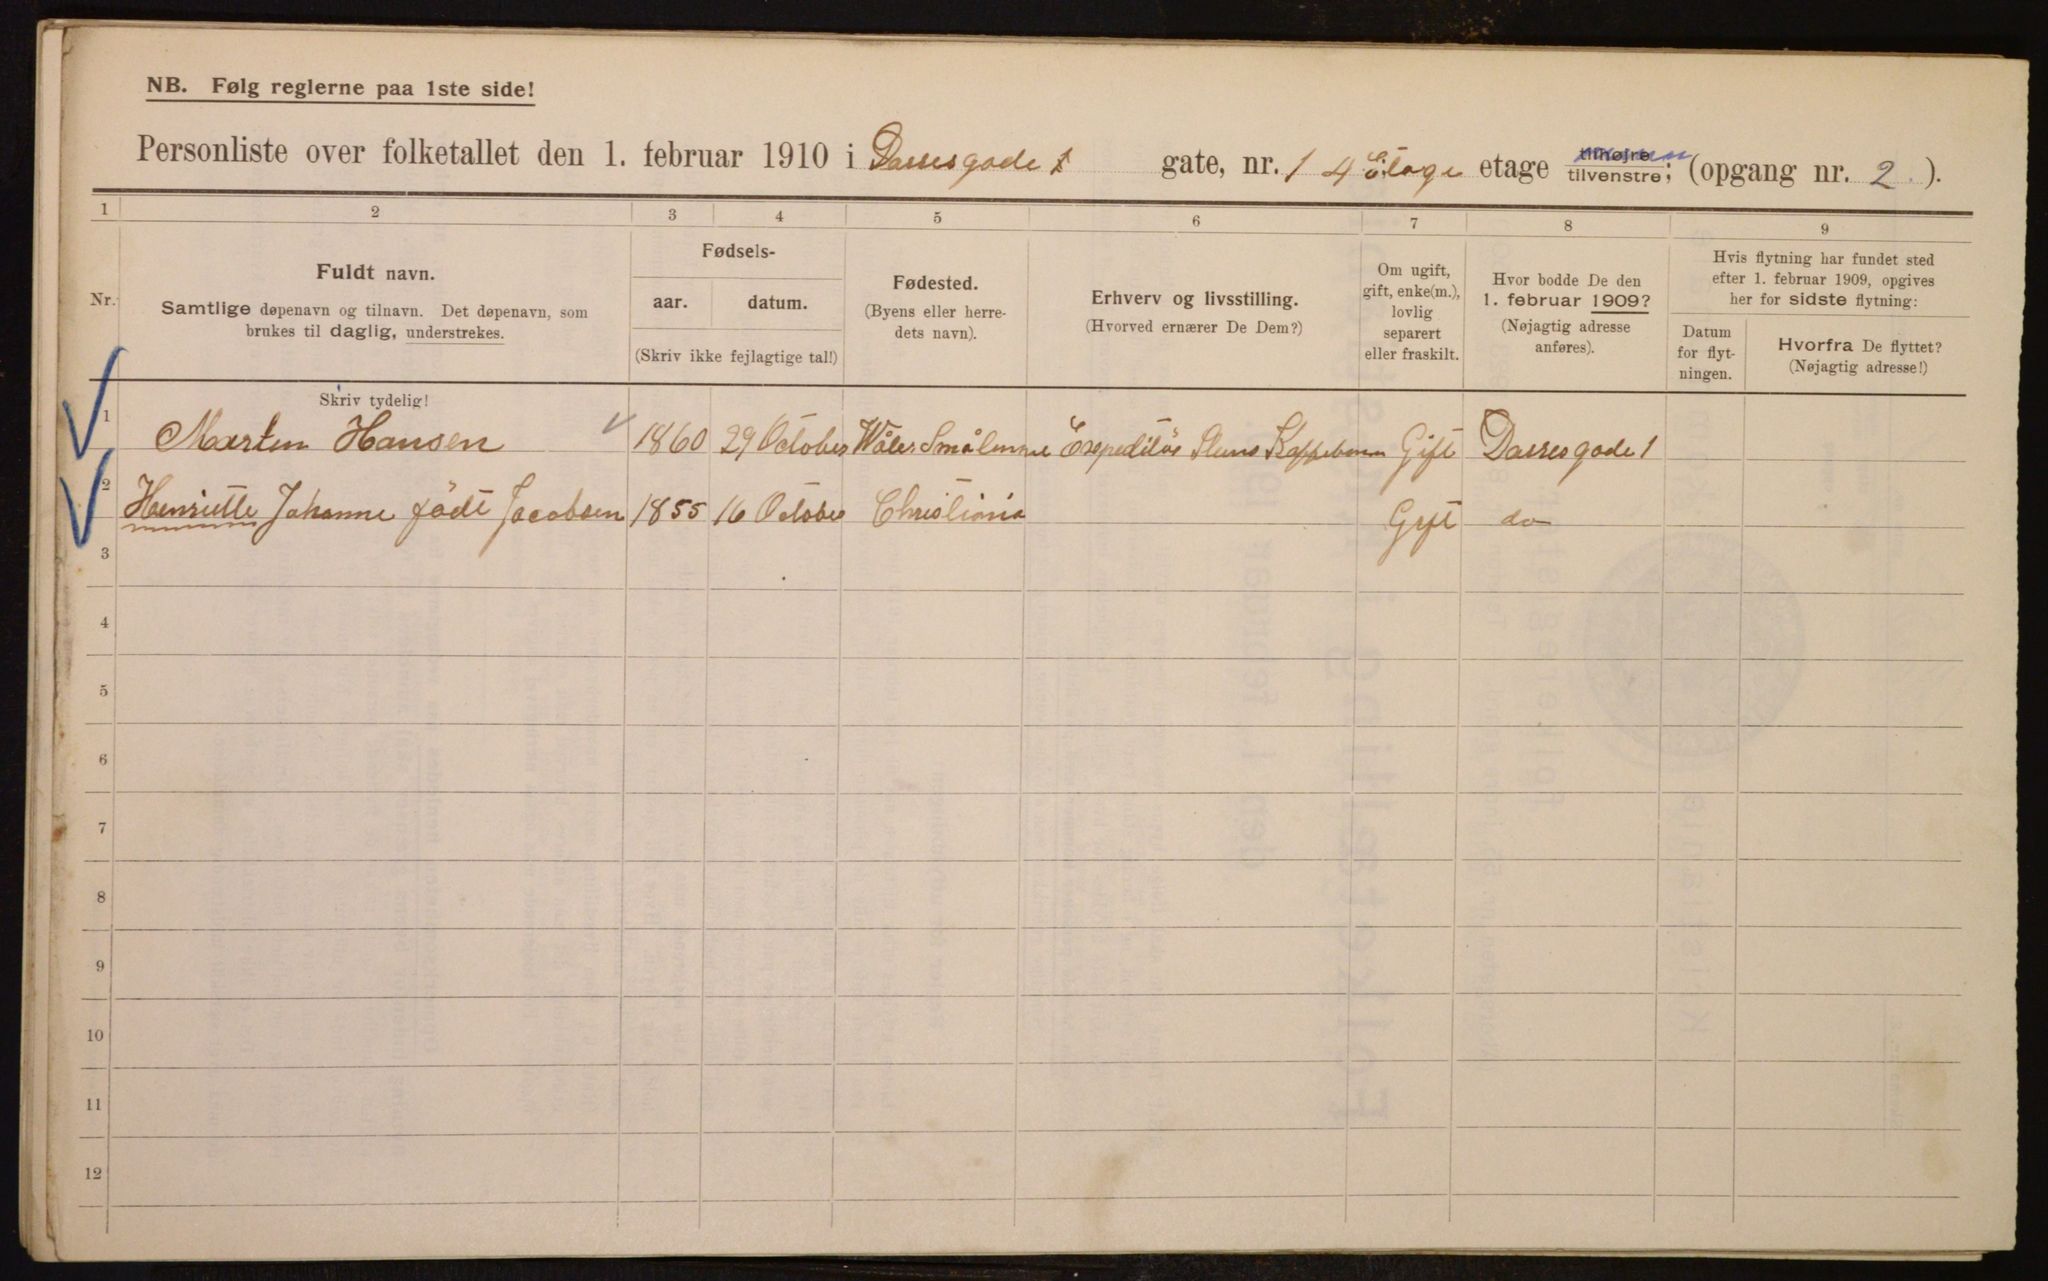 NB. Følg reglerne paa 1ste side!
Personliste over folketallet den 1. februar 1910 i Darresgade 1 gate, nr. 1 4 Etage etage tilhøjre tilvenstre; (opgang nr. 2).
1 2 3 4 5 6 7 8 9
Nr.
Fuldt navn.
Samtlige døpenavn og tilnavn. Det døpenavn, som
brukes til daglig, understrekes.
Skriv tydelig!
Fødsels-
aar. datum.
(Skriv ikke fejlagtige tal!)
Fødested.
(Byens eller herre-
dets navn).
Erhverv og livsstilling.
(Hvorved ernærer De Dem?)
Om ugift,
gift, enke(m.),
lovlig
separert
eller fraskilt.
Hvor bodde De den
1. februar 1909?
(Nøjagtig adresse
anføres).
Hvis flytning har fundet sted
efter 1. februar 1909, opgives
her for sidste flytning:
Datum
for flyt-
ningen.
Hvorfra De flyttet?
(Nøjagtig adresse!)
1 Marten Hansen 1860 29 October Wåler Smålenene Expeditør Gift Darresgade 1
2 Henriette Johanne födt Jacobsen 1855 16 October Christiania Gift do
3
4
5
6
7
8
9
10
11
12